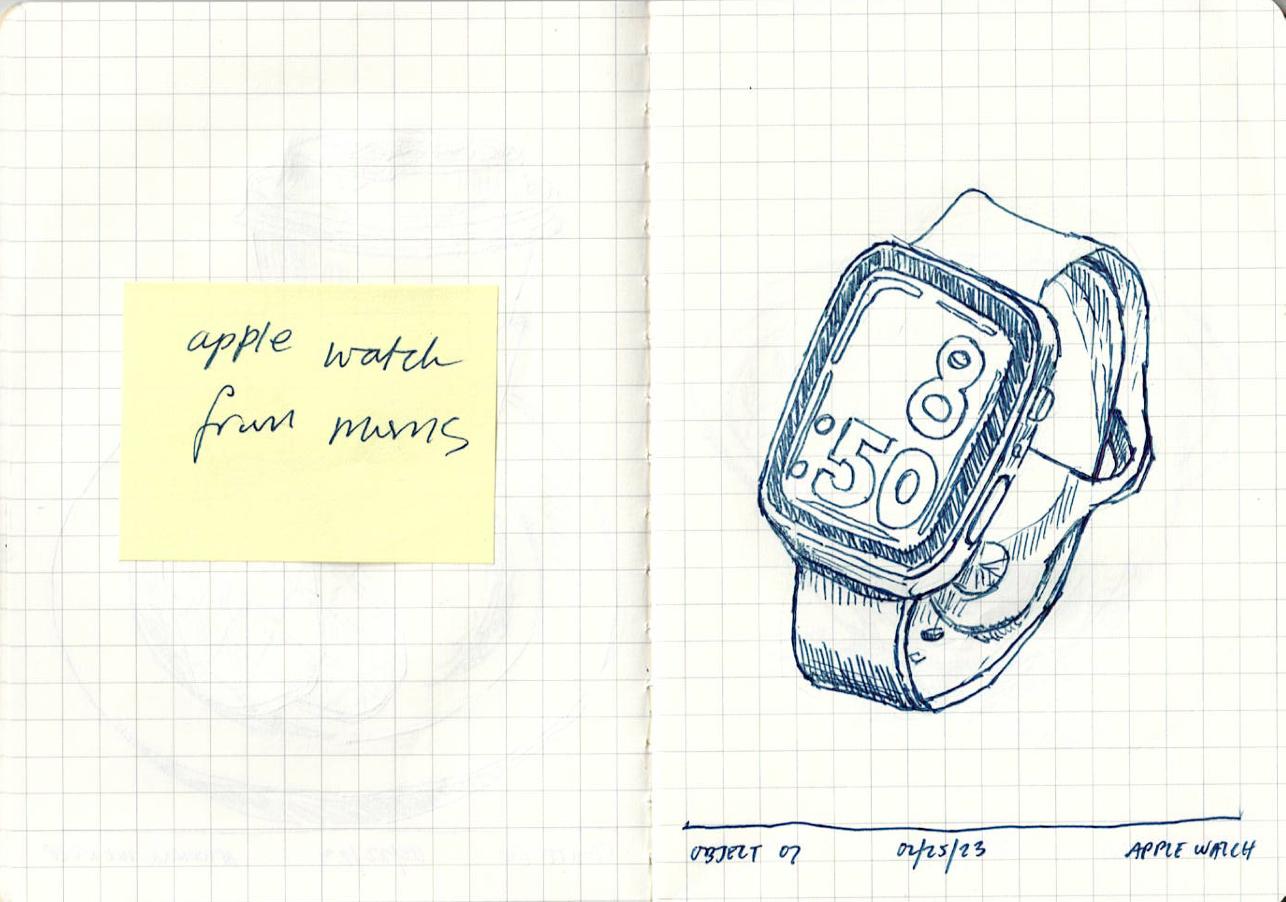 apple watch
from moms
8
50
OBJECT 07
02/25/23
APPLE WATCH